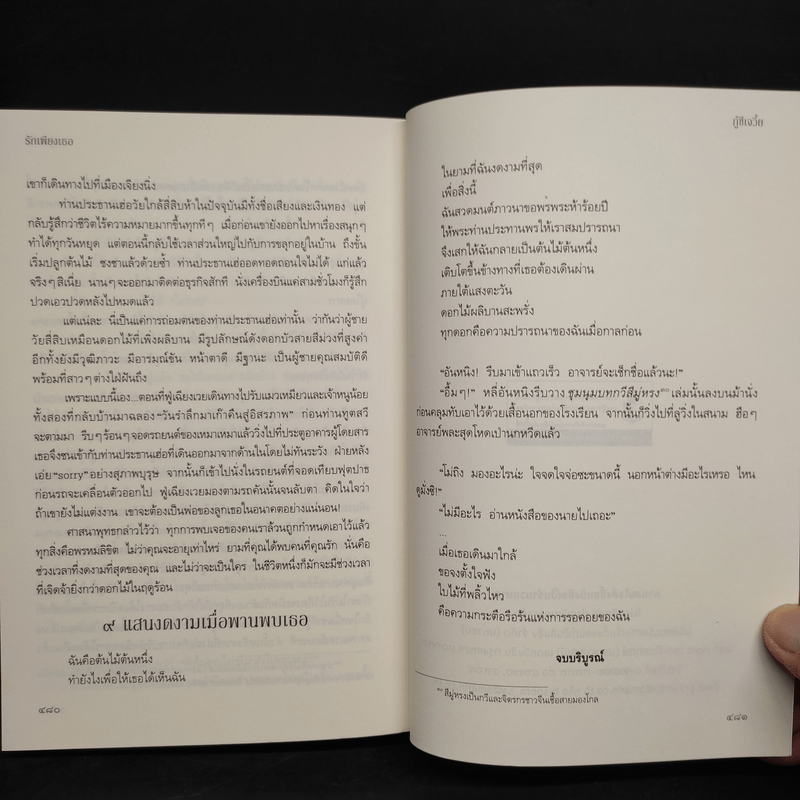 รักเพียงเธอ
เขาก็เดินทางไปที่เมืองเจียงนิ่ง
ท่านประธานเฮ่อวัยใกล้สี่สิบห้าในปัจจุบันมีทั้งชื่อเสียงและเงินทอง แต่
กลับรู้สึกว่าชีวิตไร้ความหมายมากขึ้นทุกทีๆ เมื่อก่อนเขายังออกไปหาเรื่องสนุกๆ
ทำได้ทุกวันหยุด แต่ตอนนี้กลับใช้เวลาส่วนใหญ่ไปกับการขลุกอยู่ในบ้าน ถึงขั้น
เริ่มปลูกต้นไม้ ชงชาแล้วด้วยซ้ำ ท่านประธานเฮ่ออดทอดถอนใจไม่ได้ แก่แล้ว
จริงๆ สิเนี่ย นานๆ จะออกมาติดต่อธุรกิจสักที นั่งเครื่องบินแค่สามชั่วโมงก็รู้สึก
ปวดเอวปวดหลังไปหมดแล้ว
แต่แน่ละ นี่เป็นแค่การถ่อมตนของท่านประธานเฮ่อเท่านั้น ว่ากันว่าผู้ชาย
วัยสี่สิบเหมือนดอกไม้ที่เพิ่งผลิบาน มีรูปลักษณ์ดังดอกบัวสายสีม่วงที่สูงค่า
อีกทั้งยังมีวุฒิภาวะ มีอารมณ์ขัน หน้าตาดี มีฐานะ เป็นผู้ชายคุณสมบัติดี
พร้อมที่สาวๆ ต่างใฝ่ฝันถึง
เพราะแบบนี้เอง...ตอนที่ฟู่เฉียงเวยเดินทางไปรับแมวเหมียวและเจ้าหนูน้อย
ทั้งสองที่กลับบ้านมาฉลอง "วันรำลึกมาเก๊าคืนสู่อิสรภาพ" ก่อนท่านทูตสวี
จะตามมา รีบๆ ร้อนๆ จอดรถยนต์ของเหมาเหมาแล้ววิ่งไปที่ประตูอาคารผู้โดยสาร
เธอจึงชนเข้ากับท่านประธานเฮ่อที่เดินออกมาจากด้านในโดยไม่ทันระวัง ฝ่ายหลัง
เอ่ย "sorry" อย่างสุภาพบุรุษ จากนั้นก็เข้าไปนั่งในรถยนต์ที่จอดเทียบฟุตปาธ
ก่อนรถจะเคลื่อนตัวออกไป ฟู่เฉียงเวยมองตามรถคันนั้นจนลับตา คิดในใจว่า
ถ้าเขายังไม่แต่งงาน เขาจะต้องเป็นพ่อของลูกเธอในอนาคตอย่างแน่นอน!
ศาสนาพุทธกล่าวไว้ว่า ทุกการพบเจอของคนเราล้วนถูกกำหนดเอาไว้แล้ว
ทุกสิ่งคือพรหมลิขิต ไม่ว่าคุณจะอายุเท่าไหร่ ยามที่คุณได้พบคนที่คุณรัก นั่นคือ
ช่วงเวลาที่งดงามที่สุดของคุณ และไม่ว่าจะเป็นใคร ในชีวิตหนึ่งก็มักจะมีช่วงเวลา
ที่เจิดจ้ายิ่งกว่าดอกไม้ในฤดูร้อน
๙ แสนงดงามเมื่อพานพบเธอ
ฉันคือต้นไม้ต้นหนึ่ง
ทำยังไงเพื่อให้เธอได้เห็นฉัน
๔๘๐
กู้ซีเจวี๋ย
ในยามที่ฉันงดงามที่สุด
เพื่อสิ่งนี้
ฉันสวดมนต์ภาวนาขอพรพระห้าร้อยปี
ให้พระท่านประทานพรให้เราสมปรารถนา
จึงเสกให้ฉันกลายเป็นต้นไม้ต้นหนึ่ง
เติบโตขึ้นข้างทางที่เธอต้องเดินผ่าน
ภายใต้แสงตะวัน
ดอกไม้ผลิบานสะพรั่ง
ทุกดอกคือความปรารถนาของฉันเมื่อกาลก่อน
"อันหนิง! รีบมาเข้าแถวเร็ว อาจารย์จะเช็กชื่อแล้วนะ!"
"อื้มๆ!" หลี่อันหนิงรีบวาง ชุมนุมบทกวีสีมู่หรง๓๐ เล่มนั้นลงบนม้านั่ง
ก่อนคลุมทับเอาไว้ด้วยเสื้อนอกของโรงเรียน จากนั้นก็วิ่งไปที่ลู่วิ่งในสนาม ฮือๆ
อาจารย์พละสุดโหดเป่านกหวีดแล้ว
"โม่ถิง มองอะไรน่ะ ใจจดใจจ่อซะขนาดนี้ นอกหน้าต่างมีอะไรเหรอ ไหน
ดูมั่งซิ!"
"ไม่มีอะไร อ่านหนังสือของนายไปเถอะ"
...
เมื่อเธอเดินมาใกล้
ขอจงตั้งใจฟัง
ใบไม้ที่พลิ้วไหว
คือความกระตือรือร้นแห่งการรอคอยของฉัน
จบบริบูรณ์
๓๐ สีมู่หรงเป็นกวีและจิตรกรชาวจีนเชื้อสายมองโกล
๔๘๑